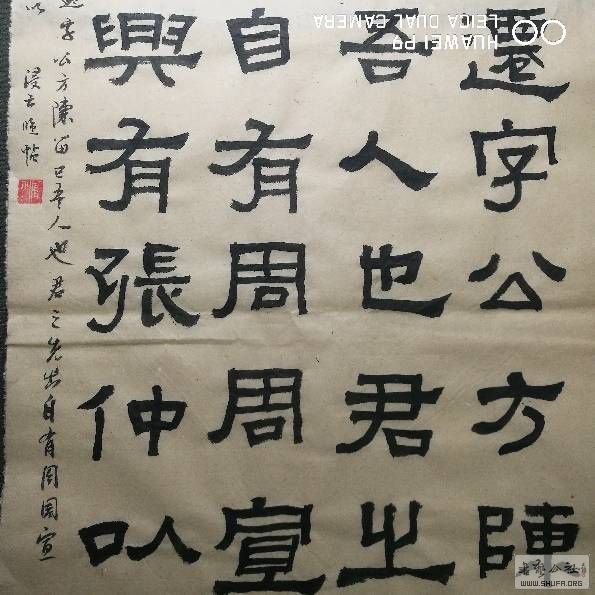 遷字公方陳
吾人也君之
自有周周宣
興有張仲以
字公方陳留己吾人也君之先出自有周周宣
臨帖
HUAWEI P9
LEICA DUAL CAMERA
WWW.SHUFA.ORG